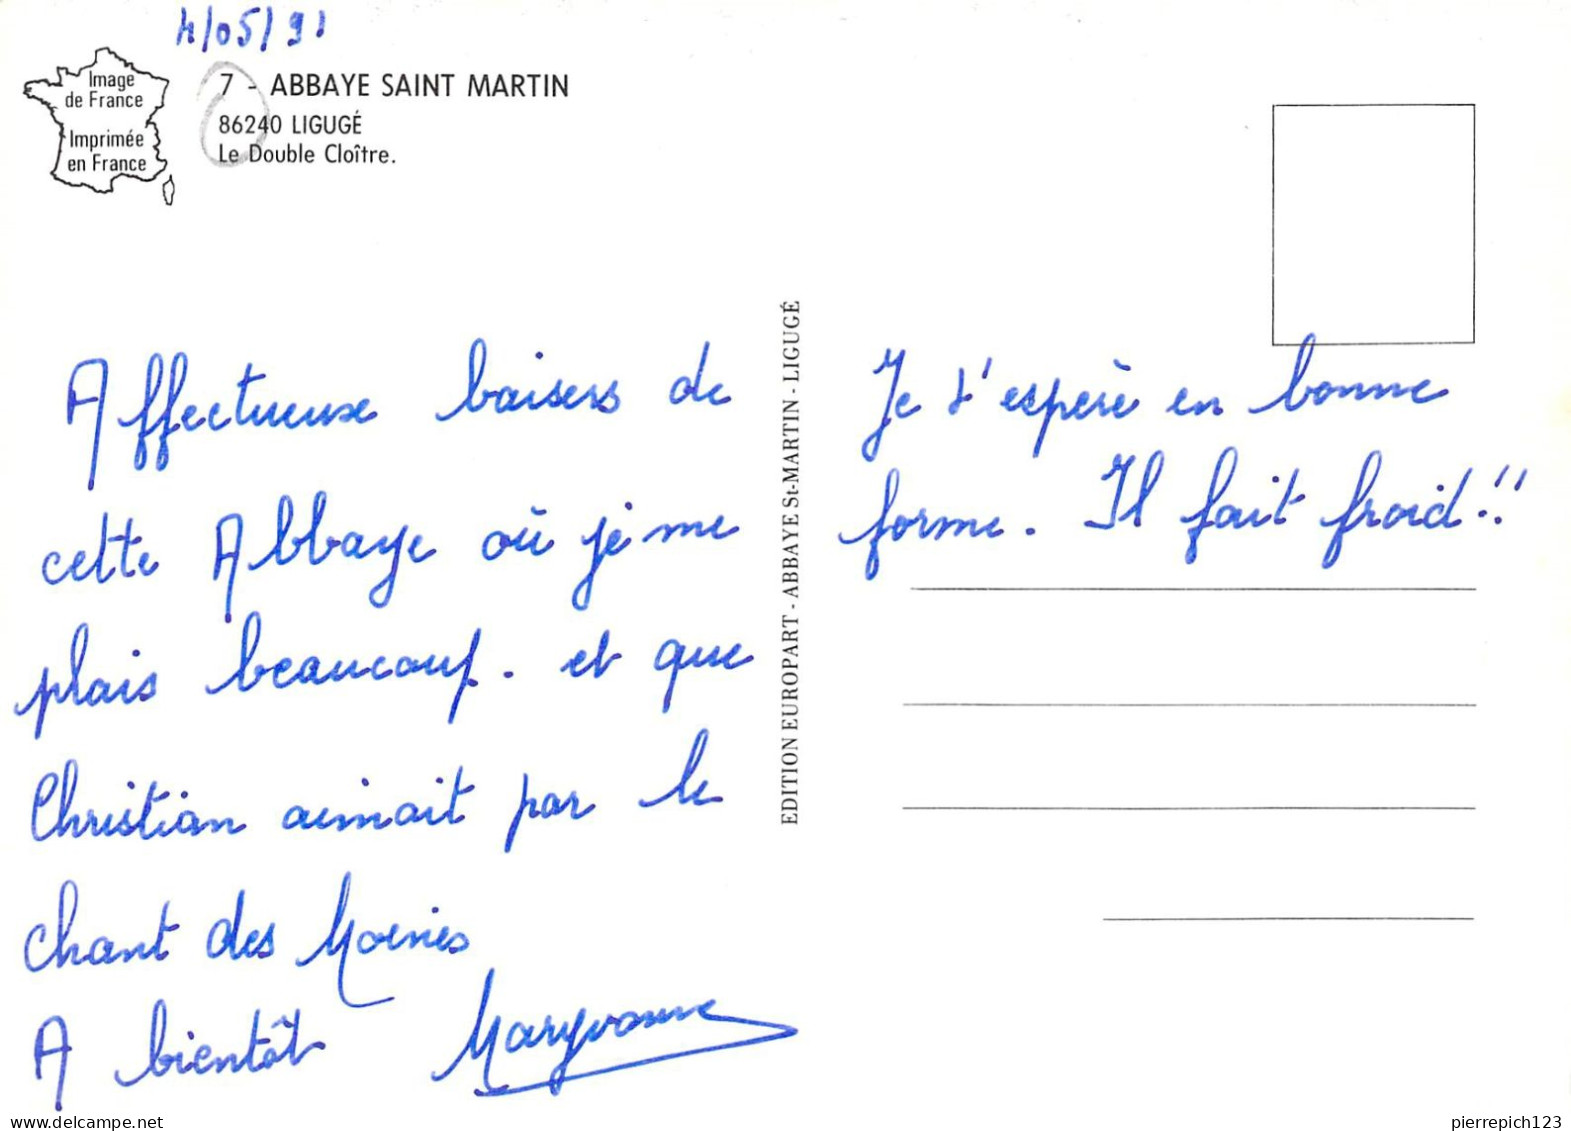 4/05/91
Image
de France
Imprimée
en France
7 - ABBAYE SAINT MARTIN
86240 LIGUGÉ
Le Double Cloître.
Affectueux baisers de
cette Abbaye où je me
plais beaucoup. et que
Christian aimait par le
chant des Moines
A bientôt Maryvonne
EDITION EUROPART - ABBAYE St-MARTIN - LIGUGÉ
Je t'espère en bonne
forme. Il fait froid!!
pierrepich123